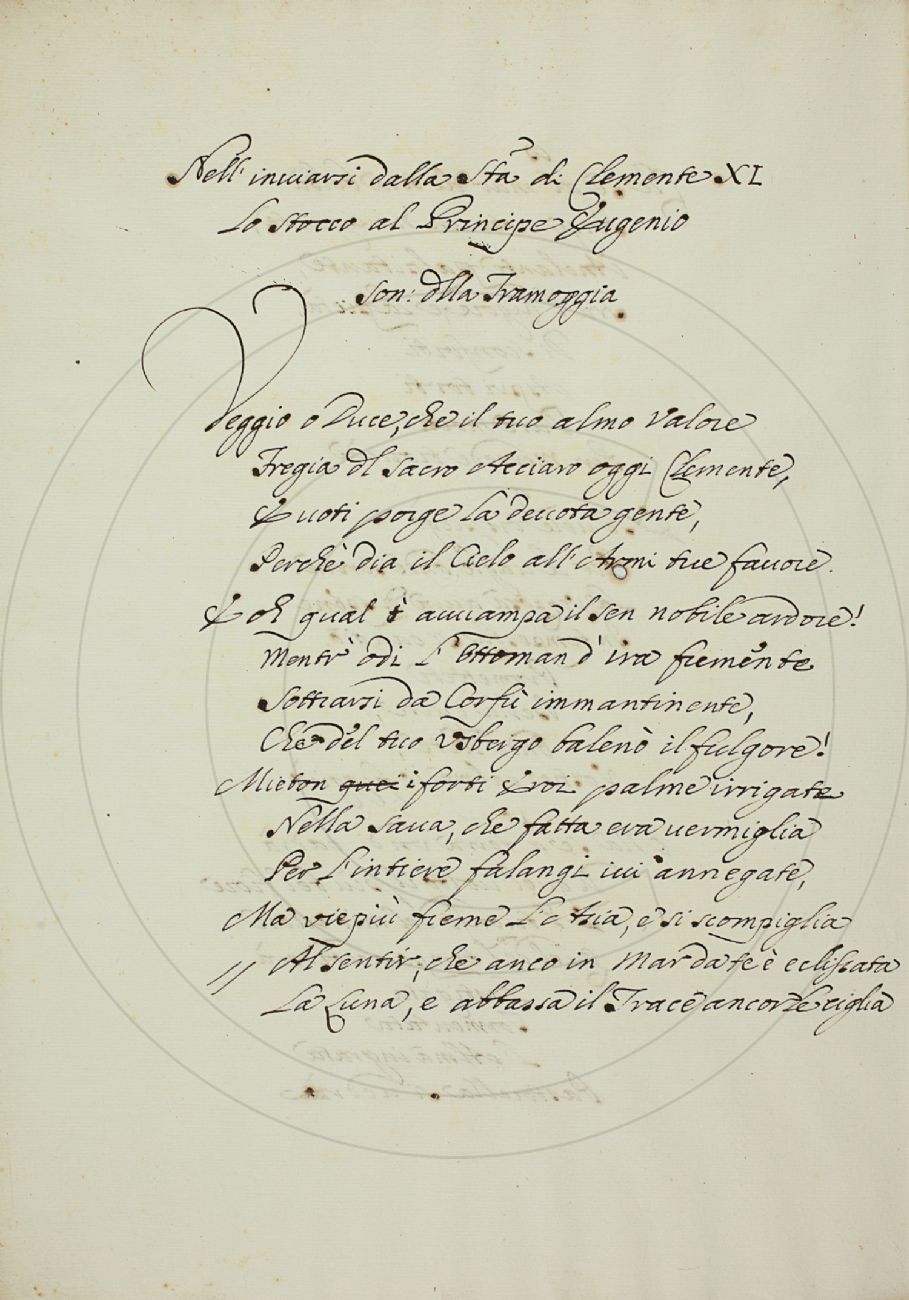 Nell' inviarsi dalla Stà di Clemente XI
Lo stocco al Principe Eugenio
Son: dlla Tramoggia
Veggio o Duce, che il tuo almo valore
Fregia dl sacro Acciaro oggi Clemente,
E voti porge la devota gente,
Perchè dia il Cielo all'Armi tue favore.
E oh qual t' avvampa il sen nobile ardore!
Mentr' odi l' Ottoman d' ira fremente
Sottrarsi da Corfù immantinente,
Che del tuo Usbergo balenò il fulgore!
Mieton quei i forti Eroi palme irrigate
Nella Sava, che fatta era vermiglia
Per l'intiere falangi ivi annegate,
Ma viepiù freme l'Asia, e si scompiglia
// Al sentir, che anco in Mar da te è eclissata
La Luna, e abbassa il Trace ancor le ciglia